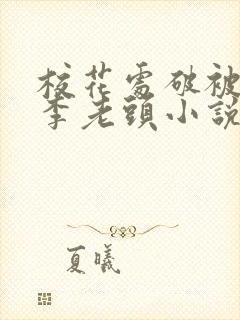 校花處破被
李老頭小説
夏曦